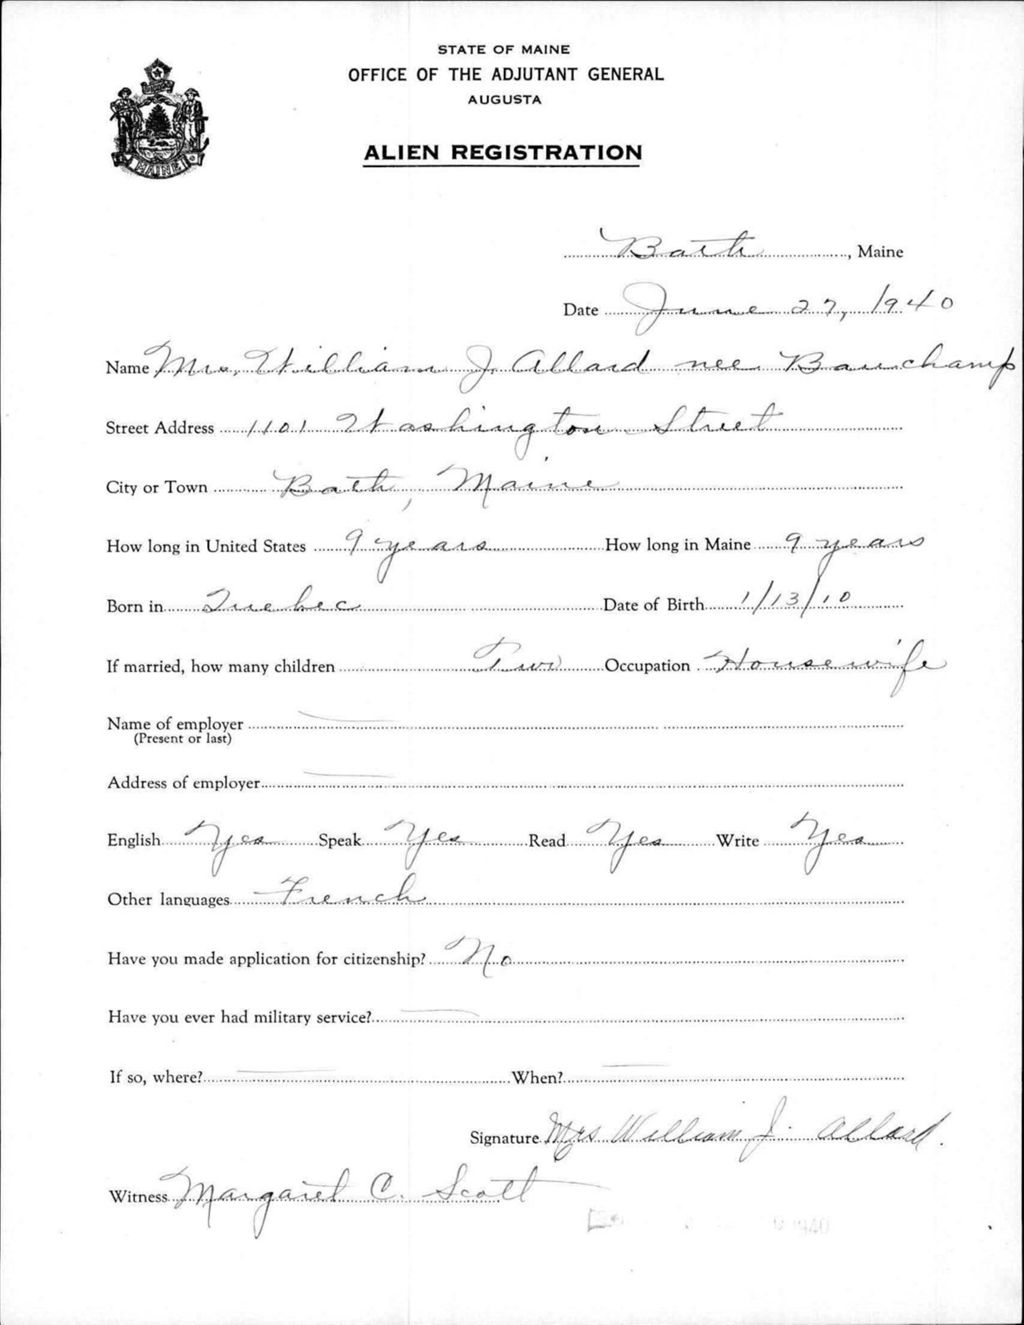 STATE OF MAINE
OFFICE OF THE ADJUTANT GENERAL
AUGUSTA
ALIEN REGISTRATION
MAINE
Bath, Maine
Date June 27, 1940
Name Mrs. William J. Allard nee Bauchamp
Street Address 1101 Washington Street
City or Town Bath, Maine
How long in United States 9 years How long in Maine 9 years
Born in Quebec Date of Birth 1/13/10
If married, how many children Two Occupation Housewife
Name of employer
(Present or last)
Address of employer
English Yes Speak Yes Read Yes Write Yes
Other languages French
Have you made application for citizenship? No
Have you ever had military service?
If so, where? When?
Signature Mrs William J. Allard.
Witness Margaret C. Scott
1940